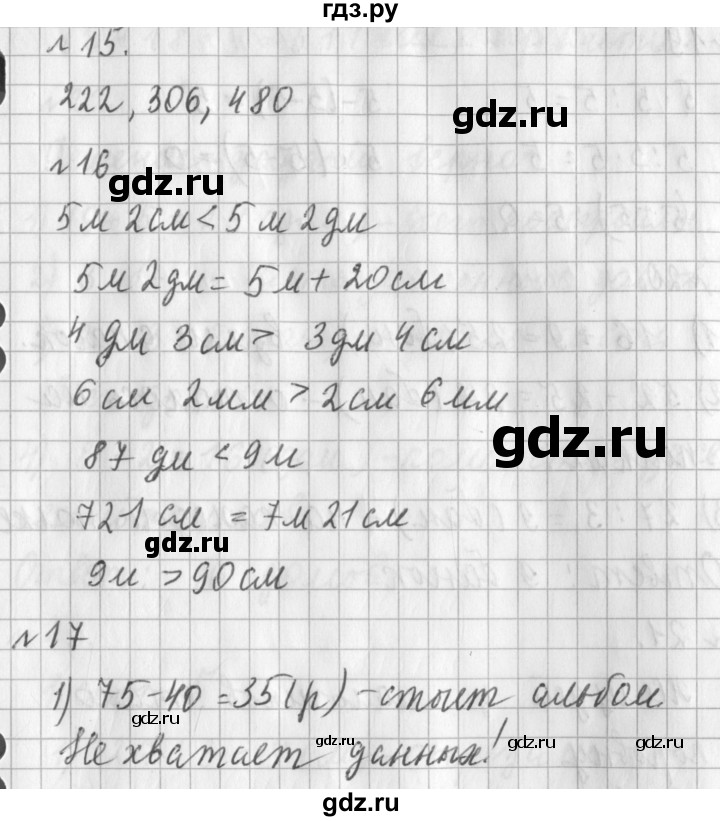 гдз.ру
№15.
222, 306, 480
gdz.ru
№16
gdz.ru
5м 2см < 5м 2дм
5м 2дм = 5м + 20см
4 дм 3см > 3дм 4см
6см 2мм > 2см 6мм
gdz.ru
87 дм < 9м
721 см = 7м 21см
gdz.ru
9м > 90см
№17
1) 75-40=35(р) - стоит альбом.
gdz.ru
Не хватает данных!
gdz.ru gdz.ru gdz.ru
gdz.ru